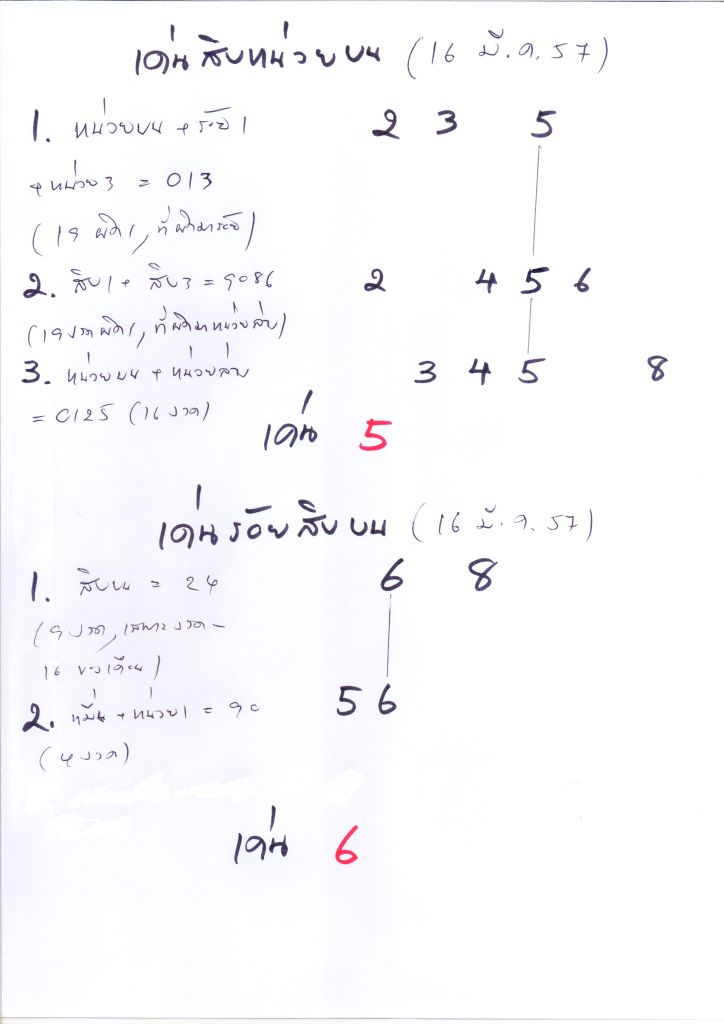 เด่นสิบหน่วยบน (16 มี.ค.57)
1. หน่วยบน + ร้อย1 2 3 5
+ หน่วย3 = 013
(19 ผิด1, ที่ผิดมาร้อย)
2. สิบ1 + สิบ3 = 9086 2 4 5 6
(19งวดผิด1, ที่ผิดมาหน่วยล่าง)
3. หน่วยบน + หน่วยล่าง 3 4 5 8
= 0125 (16 งวด)
เด่น 5
เด่นร้อยสิบบน (16 มี.ค.57)
1. สิบบน = 24 6 8
(9 งวด, เฉพาะงวด -
16 ของเดือน)
2. หมื่น + หน่วย1 = 90 5 6
(4 งวด)
เด่น 6